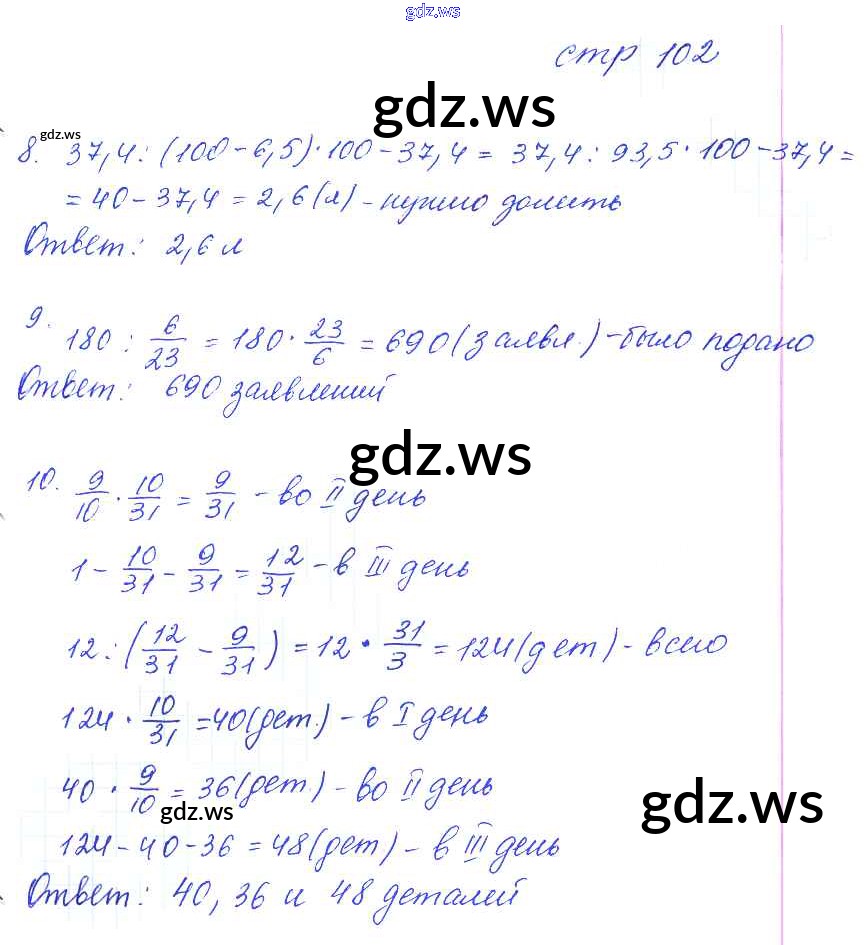 gdz.ws
стр 102
gdz.ws
gdz.ws
8. 37,4 : (100 - 6,5) · 100 - 37,4 = 37,4 : 93,5 · 100 - 37,4 =
= 40 - 37,4 = 2,6 (л) - нужно долить
Ответ: 2,6 л
9. 180 : 6/23 = 180 · 23/6 = 690 (заявл.) - было подано
Ответ: 690 заявлений
gdz.ws
10. 9/10 · 10/31 = 9/31 - во II день
1 - 10/31 - 9/31 = 12/31 - в III день
12 : (12/31 - 9/31) = 12 · 31/3 = 124 (дет) - всего
124 · 10/31 = 40 (дет.) - в I день
40 · 9/10 = 36 (дет.) - во II день
gdz.ws
gdz.ws
124 - 40 - 36 = 48 (дет) - в III день
Ответ: 40, 36 и 48 деталей